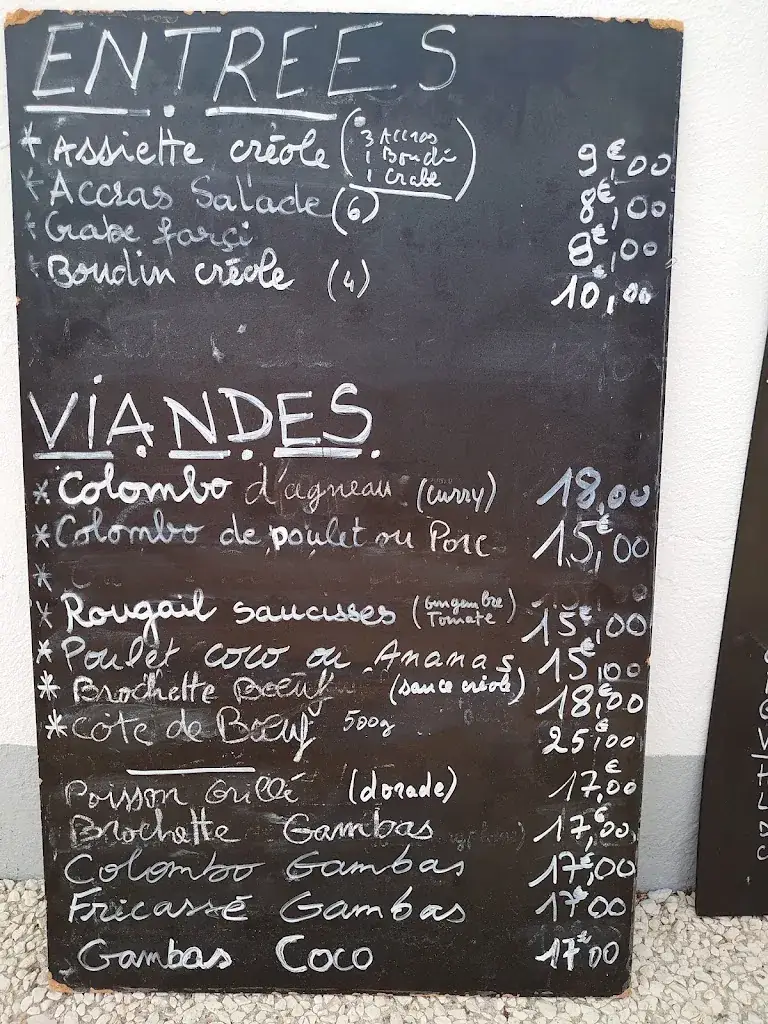 ENTREES
* Assiette créole (3 Accras 9€,00
1 Boudin
1 Crabe)
* Accras Salade (6) 8€,00
* Crabe farçi 8€,00
* Boudin créole (4) 10€,00
VIANDES
* Colombo d'agneau (curry) 18,00
* Colombo de poulet ou Porc 15€,00
*
* Rougail saucisses (Gingembre Tomate) 15€,00
* Poulet coco ou Ananas 15€,00
* Brochette Bœuf (sauce créole) 18€,00
* Côte de Bœuf 500g 25€,00
Poisson Grillé (dorade) 17€,00
Brochette Gambas 17€,00
Colombo Gambas 17€,00
Fricassé Gambas 17€00
Gambas Coco 17€00